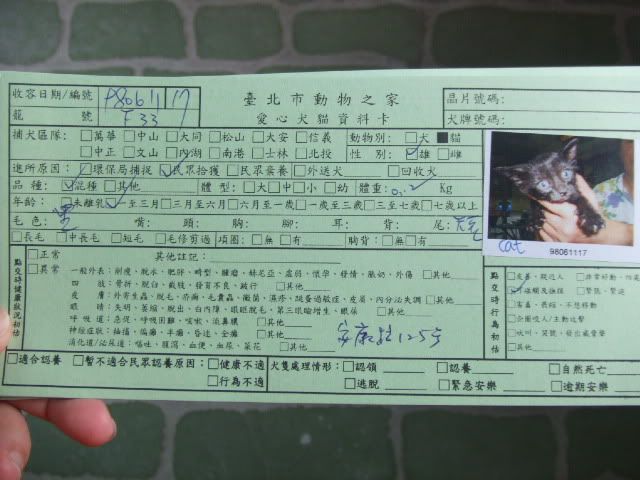 收容日期/編號 980611 17
籠 號 F33
臺北市動物之家
愛心犬貓資料卡
晶片號碼:
犬牌號碼:
捕犬區隊: □萬華 □中山 □大同 □松山 □大安 □信義
□中正 □文山 □內湖 □南港 □士林 □北投
動物別: □犬 ■貓
性 別: ☑雄 □雌
進所原因: □環保局捕捉 ☑民眾拾獲 □民眾棄養 □外送犬 □回收犬
品 種: ☑混種 □其他 體 型: □大 □中 □小 □幼 體重: 0.2 Kg
年齡: □未離乳 ☑一至三月 □三月至六月 □六月至一歲 □一歲至三歲 □三至七歲 □七歲以上
毛 色: 黑 嘴: 頭: 胸: 腳: 耳: 背: 尾:
□長毛 □中長毛 □短毛 □毛修剪過 項圈: □無 □有 胸背: □無 □有
cat
98061117
點交時健康狀況初估
□正常
□異常
其他註記:
一般外表: 削瘦、脫水、肥胖、畸型、腫瘤、赫尼亞、虛弱、懷孕、發情、脹奶、外傷 □其他
四 肢: 骨折、脫臼、截肢、發育不良、跛行 □其他
皮 膚: 外寄生蟲、脫毛、疥癬、毛囊蟲、黴菌、濕疹、跳蚤過敏症、皮屑、內分泌失調 □其他
眼 睛: 失明、萎縮、脫出、白內障、眼眶脫毛、第三眼瞼增生、眼屎 □其他
呼 吸 道: 急促、呼吸困難、咳嗽、流鼻膿 □其他
神經症狀: 抽搐、癲癇、半癱、昏迷、全癱 □其他
消化道/泌尿道: 嘔吐、腹瀉、血便、血尿、菜花 □其他
安康路125号
點交時行為初估
□友善、親近人
□緊張、緊迫
□害羞、畏縮、不想移動
□企圖咬人/主動攻擊
□吠叫、哭號、發出威脅聲
□其他
□適合認養 □暫不適合民眾認養原因: □健康不適
□行為不適
犬隻處理情形: □認領 □認養 □自然死亡
□逃脫 □緊急安樂 □逾期安樂